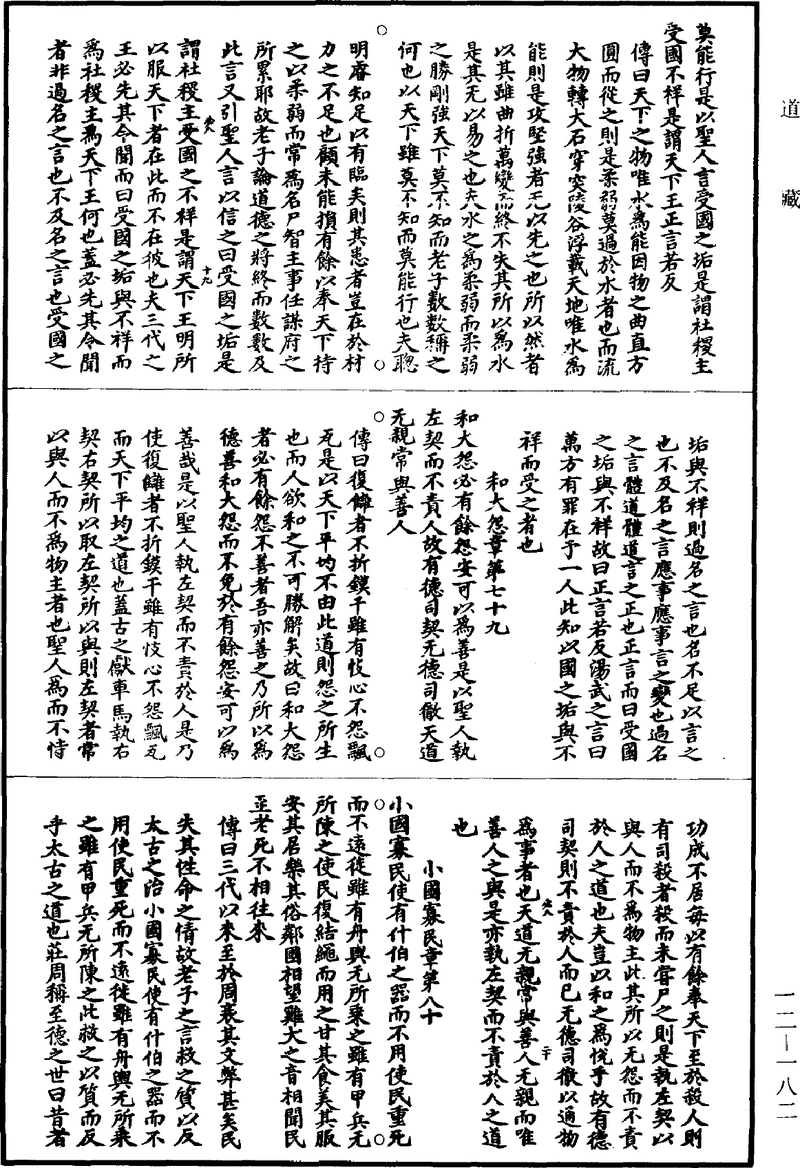 道藏
莫能行是以聖人言受國之垢是謂社稷主
受國不祥是謂天下王正言若反
傳曰天下之物唯水為能因物之曲直方
圓而從之則是柔弱莫過於水者也而流
大物轉大石穿突陵谷浮載天地唯水為
能則是攻堅強者无以先之也所以然者
以其雖曲折萬變而終不失其所以為水
是其无以易之也夫水之為柔弱而柔弱
之勝剛強天下莫不知而老子數數稱之
何也以天下雖莫不知而莫能行也夫聰
明睿知足以有臨矣則其患者豈在於材
力之不足也顧未能損有餘以奉天下持
之以柔弱而常為名尸智主事任謀府之
所累耶故老子論道德之將終而數數及
此言又引聖人言以信之曰受國之垢是
謂社稷主受國之不祥是謂天下王明所
以服天下者在此而不在彼也夫三代之
王必先其令聞而曰受國之垢與不祥而
為社稷主為天下王何也蓋必先其令聞
者非過名之言也不及名之言也受國之
垢與不祥則過名之言也名不足以言之
也不及名之言應事應事言之變也過名
之言體道體道言之正也正言而曰受國
之垢與不祥故曰正言若反湯武之言曰
萬方有罪在予一人此知以國之垢與不
祥而受之者也
和大怨章第七十九
和大怨必有餘怨安可以為善是以聖人執
左契而不責人故有德司契无德司徹天道
无親常與善人
傳曰復讎者不折鏌干雖有忮心不怨飄
瓦是以天下平均不由此道則怨之所生
也而人欲和之不可勝解矣故曰和大怨
者必有餘怨不善者吾亦善之乃所以為
德善和大怨而不免於有餘怨安可以為
善哉是以聖人執左契而不責於人是乃
使復讎者不折鏌干雖有忮心不怨飄瓦
而天下平均之道也蓋古之獻車馬執右
契右契所以取左契所以與則左契者常
以與人而不為物主者也聖人為而不恃
功成不居每以有餘奉天下至於殺人則
有司殺者殺而未嘗尸之則是執左契以
與人而不為物主此其所以无怨而不責
於人之道也夫豈以和之為悅乎故有德
司契則不責於人而已无德司徹以通物
為事者也天道无親常與善人无親而唯
善人之與是亦執左契而不責於人之道
也
小國寡民章第八十
小國寡民使有什伯之器而不用使民重死
而不遠徙雖有舟輿无所乘之雖有甲兵无
所陳之使民復結繩而用之甘其食美其服
安其居樂其俗鄰國相望雞犬之音相聞民
至老死不相往來
傳曰三代以來至於周衰其文弊甚矣民
失其性命之情故老子之言救之質以反
太古之治小國寡民使有什伯之器而不
用使民重死而不遠徙雖有舟輿无所乘
之雖有甲兵无所陳之此救之以質而反
乎太古之道也莊周稱至德之世曰昔者
一二—一八二